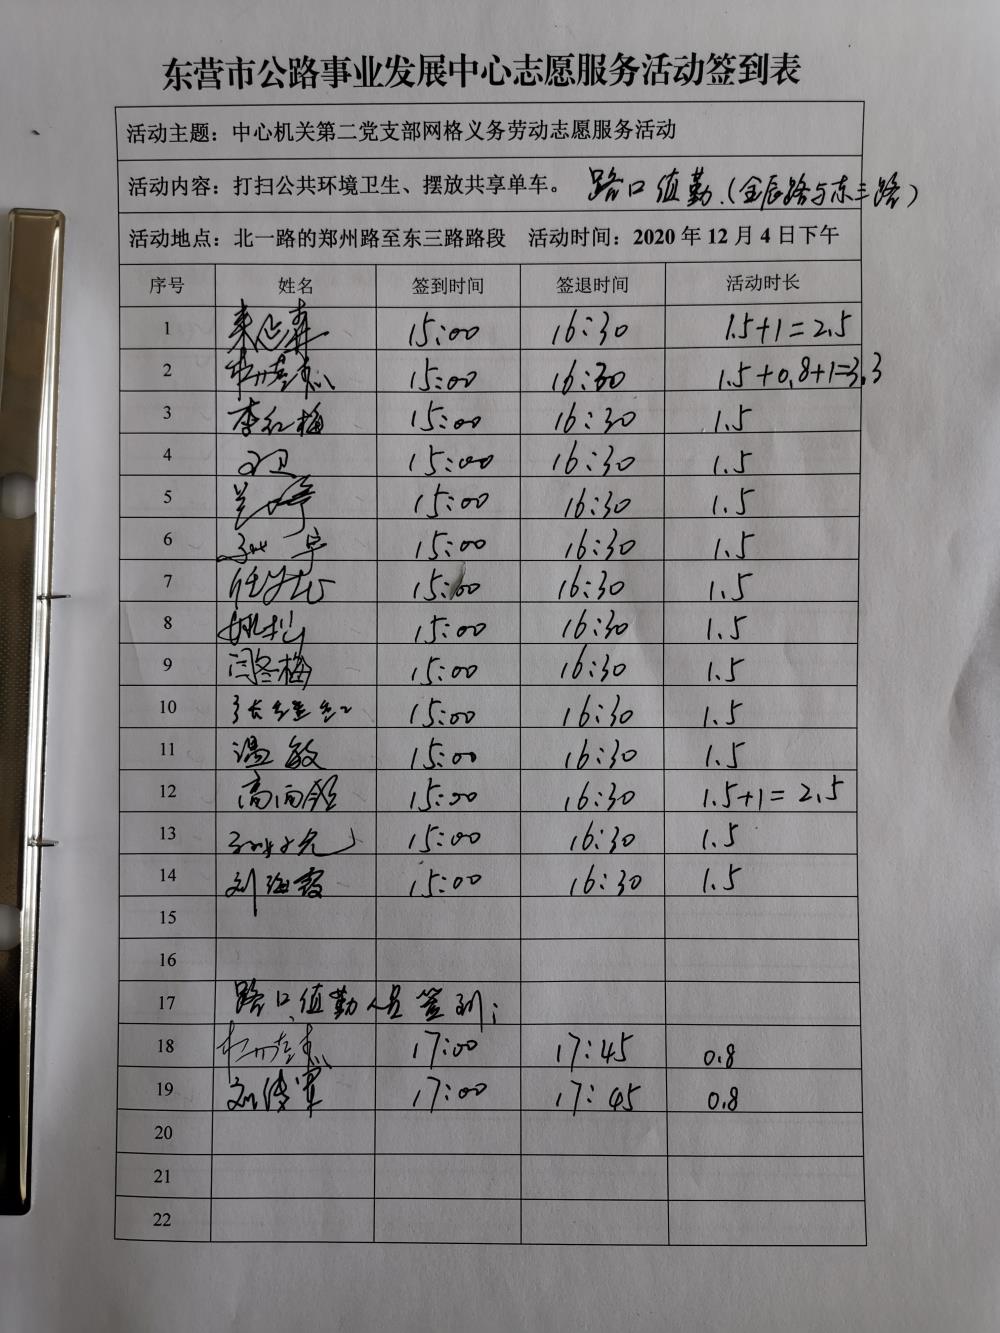 东营市公路事业发展中心志愿服务活动签到表
活动主题：中心机关第二党支部网格义务劳动志愿服务活动
活动内容：打扫公共环境卫生、摆放共享单车。 路口值勤.(金辰路与东三路)
活动地点：北一路的郑州路至东三路路段 活动时间：2020 年 12 月 4 日下午
序号 姓名 签到时间 签退时间 活动时长
1 15:00 16:30 1.5+1=2.5
2 15:00 16:30 1.5+0.8+1=3.3
3 李红梅 15:00 16:30 1.5
4 15:00 16:30 1.5
5 15:00 16:30 1.5
6 15:00 16:30 1.5
7 15:00 16:30 1.5
8 姚松 15:00 16:30 1.5
9 闫冬梅 15:00 16:30 1.5
10 15:00 16:30 1.5
11 温敏 15:00 16:30 1.5
12 高向颖 15:00 16:30 1.5+1=2.5
13 15:00 16:30 1.5
14 刘海霞 15:00 16:30 1.5
15
16
17 路口值勤人员签到：
18 17:00 17:45 0.8
19 17:00 17:45 0.8
20
21
22